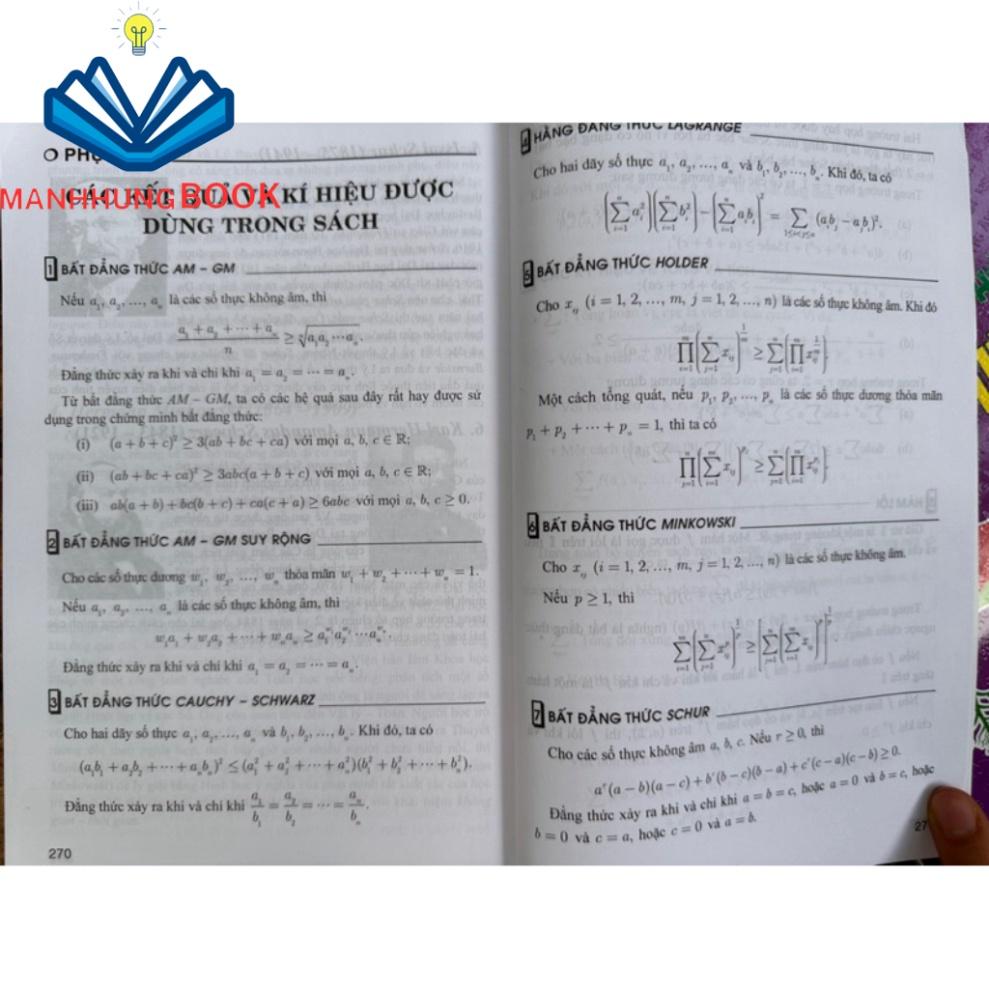 MANHHUNG BOOK
CÁC KẾT QUẢ VÀ KÍ HIỆU ĐƯỢC
DÙNG TRONG SÁCH
1 BẤT ĐẲNG THỨC AM – GM
Nếu a₁, a₂, ..., aₙ là các số thực không âm, thì
(a₁ + a₂ + ⋯ + aₙ)/n ≥ ⁿ√(a₁a₂⋯aₙ).
Đẳng thức xảy ra khi và chỉ khi a₁ = a₂ = ⋯ = aₙ.
Từ bất đẳng thức AM – GM, ta có các hệ quả sau đây rất hay được sử
dụng trong chứng minh bất đẳng thức:
(i) (a + b + c)² ≥ 3(ab + bc + ca) với mọi a, b, c ∈ ℝ;
(ii) (ab + bc + ca)² ≥ 3abc(a + b + c) với mọi a, b, c ∈ ℝ;
(iii) ab(a + b) + bc(b + c) + ca(c + a) ≥ 6abc với mọi a, b, c ≥ 0.
2 BẤT ĐẲNG THỨC AM – GM SUY RỘNG
Cho các số thực dương w₁, w₂, ..., wₙ thỏa mãn w₁ + w₂ + ⋯ + wₙ = 1.
Nếu a₁, a₂, ..., aₙ là các số thực không âm, thì
w₁a₁ + w₂a₂ + ⋯ + wₙaₙ ≥ a₁^w₁ a₂^w₂ ⋯ aₙ^wₙ.
Đẳng thức xảy ra khi và chỉ khi a₁ = a₂ = ⋯ = aₙ.
3 BẤT ĐẲNG THỨC CAUCHY – SCHWARZ
Cho hai dãy số thực a₁, a₂, ..., aₙ và b₁, b₂, ..., bₙ. Khi đó, ta có
(a₁b₁ + a₂b₂ + ⋯ + aₙbₙ)² ≤ (a₁² + a₂² + ⋯ + aₙ²)(b₁² + b₂² + ⋯ + bₙ²).
Đẳng thức xảy ra khi và chỉ khi a₁/b₁ = a₂/b₂ = ⋯ = aₙ/bₙ.
270
4 HẰNG ĐẲNG THỨC LAGRANGE
Cho hai dãy số thực a₁, a₂, ..., aₙ và b₁, b₂, ..., bₙ. Khi đó, ta có
(∑ᵢ₌₁ⁿ aᵢ²)(∑ᵢ₌₁ⁿ bᵢ²) − (∑ᵢ₌₁ⁿ aᵢbᵢ)² = ∑_{1≤i<j≤n} (aᵢbⱼ − aⱼbᵢ)².
5 BẤT ĐẲNG THỨC HOLDER
Cho xᵢⱼ (i = 1, 2, ..., m, j = 1, 2, ..., n) là các số thực không âm. Khi đó
∏ᵢ₌₁ᵐ (∑ⱼ₌₁ⁿ xᵢⱼ)^(1/m) ≥ ∑ⱼ₌₁ⁿ (∏ᵢ₌₁ᵐ xᵢⱼ^(1/m)).
Một cách tổng quát, nếu p₁, p₂, ..., pₙ là các số thực dương thỏa mãn
p₁ + p₂ + ⋯ + pₙ = 1, thì ta có
6 BẤT ĐẲNG THỨC MINKOWSKI
Cho xᵢⱼ (i = 1, 2, ..., m, j = 1, 2, ..., n) là các số thực không âm.
Nếu p ≥ 1, thì
7 BẤT ĐẲNG THỨC SCHUR
Cho các số thực không âm a, b, c. Nếu r ≥ 0, thì
aʳ(a − b)(a − c) + bʳ(b − c)(b − a) + cʳ(c − a)(c − b) ≥ 0.
Đẳng thức xảy ra khi và chỉ khi a = b = c, hoặc a = 0 và b = c, hoặc
b = 0 và c = a, hoặc c = 0 và a = b.